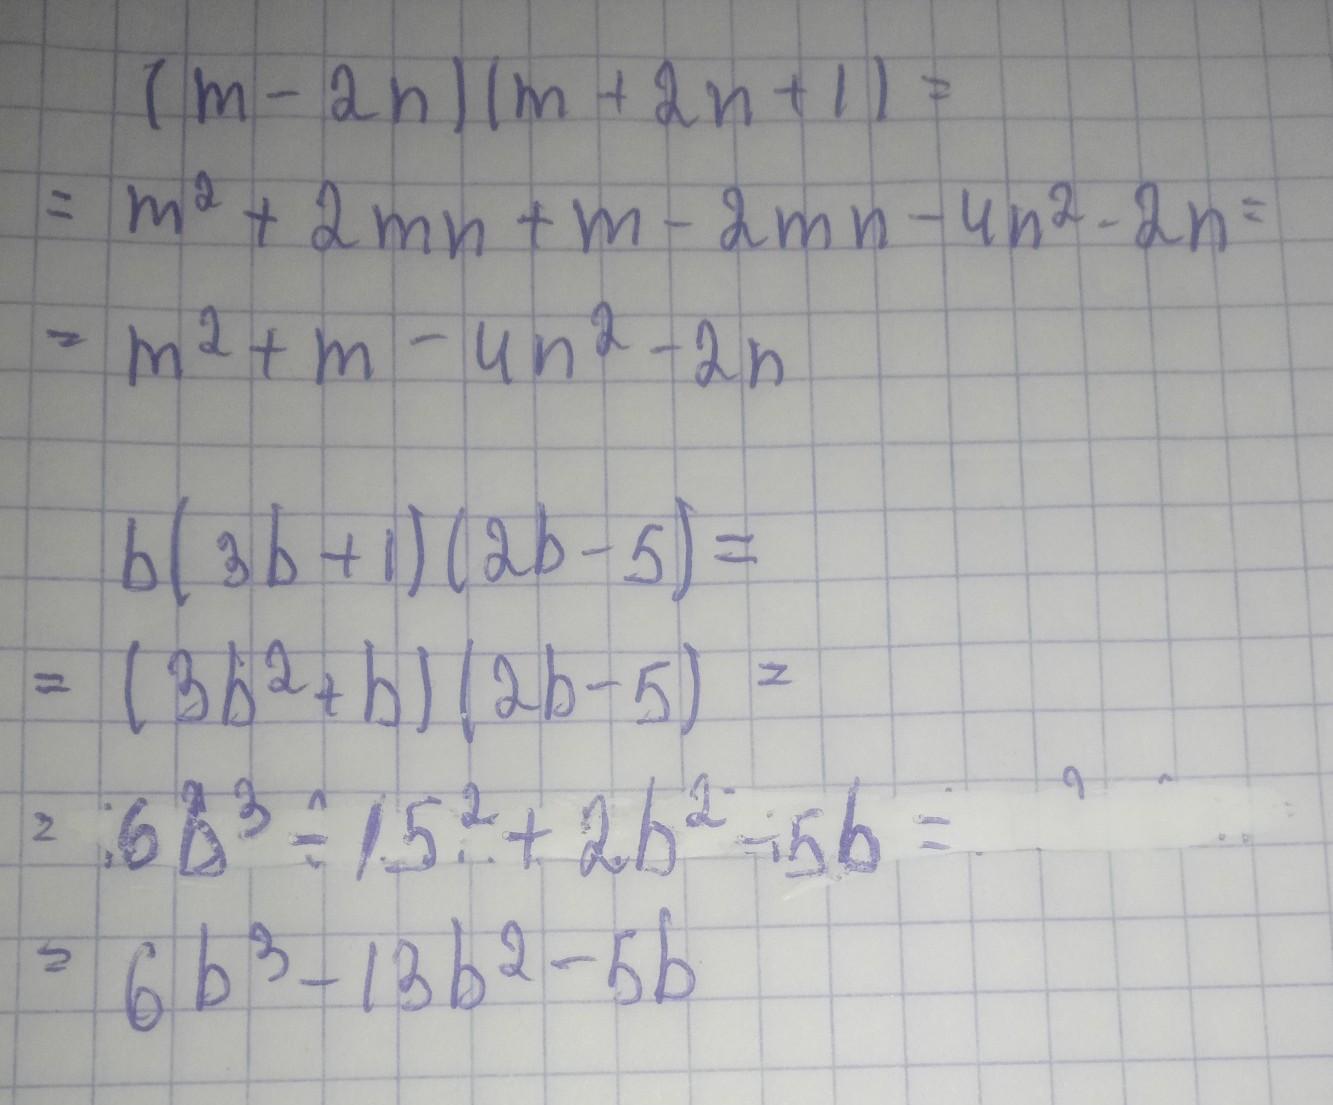 (m - 2n)(m + 2n + 1) =
= m² + 2mn + m - 2mn - 4n² - 2n =
= m² + m - 4n² - 2n
b(3b + 1)(2b - 5) =
= (3b² + b)(2b - 5) =
= 6b³ - 15² + 2b² - 5b =
= 6b³ - 13b² - 5b